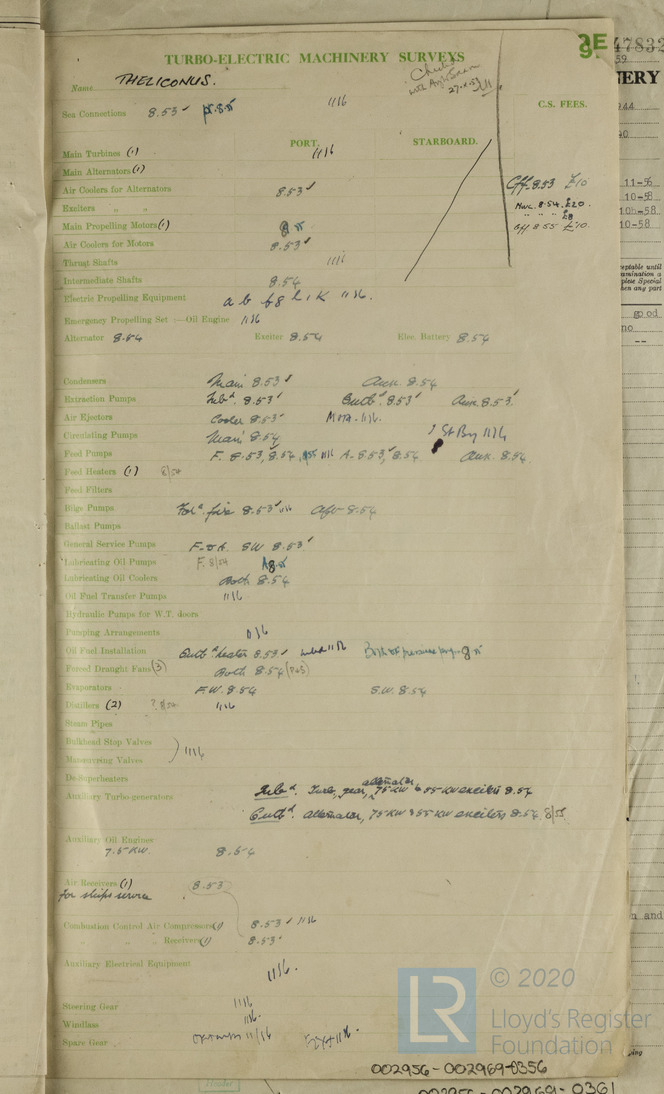 3E
9.
47832
TURBO-ELECTRIC MACHINERY SURVEYS
Name THELICONUS.
27.X.5
Sea Connections 8.53 11/6
C.S. FEES.
PORT. STARBOARD.
Main Turbines (1) 11/6
Main Alternators (1)
Air Coolers for Alternators 8.53
Exciters " "
Main Propelling Motors (1)
Air Coolers for Motors 8.53
Thrust Shafts 11/6
Intermediate Shafts 8.54
8.53 £10
8.54 £20.
" " " £8
8 55 £10.
Electric Propelling Equipment a b f g h i K 11/6.
Emergency Propelling Set :—Oil Engine 11/6
Alternator 8.54 Exciter 8.54 Elec. Battery 8.54
Condensers Main 8.53 Aux. 8.54
Extraction Pumps Inbd. 8.53 Outbd. 8.53 Aux 8.53
Air Ejectors Cooler 8.53 11/6.
Circulating Pumps Main 8.54 St By 11/6
Feed Pumps F. 8.53, 8.54, 11/6 A. 8.53, 8.54 Aux. 8.54
Feed Heaters (1) 8/54
Feed Filters
Bilge Pumps Ford. fire 8.53 11/6 Aft 8.54
Ballast Pumps
General Service Pumps F. & A. SW 8.53
Lubricating Oil Pumps F. 8/54
Lubricating Oil Coolers Both 8.54
Oil Fuel Transfer Pumps 11/6
Hydraulic Pumps for W.T. doors
Pumping Arrangements 11/6
Oil Fuel Installation Outbd heater 8.53 inbd 11/6 Both
Forced Draught Fans (3) Both 8.54 (P&S)
Evaporators F.W. 8.54 S.W. 8.54
Distillers (2) ? 8/54 11/6
Steam Pipes
Bulkhead Stop Valves
Manœuvring Valves 11/6
De-Superheaters
Auxiliary Turbo-generators Inbd. Turb, gear, alternator, 75 KW & 55 KW exciters 8.54
Outbd. alternator, 75 KW & 55 KW exciters 8.54 8/55
Auxiliary Oil Engines
7.5 KW. 8.54
Air Receivers (1) 8.53
for ships service
Combustion Control Air Compressors (1) 8.53 11/6
" " " Receivers (1) 8.53
Auxiliary Electrical Equipment 11/6.
Steering Gear 11/6
Windlass 11/6.
Spare Gear 11/16
© 2020
LR
Lloyd's Register
Foundation
002956-002969-0356
002956-002969-0361